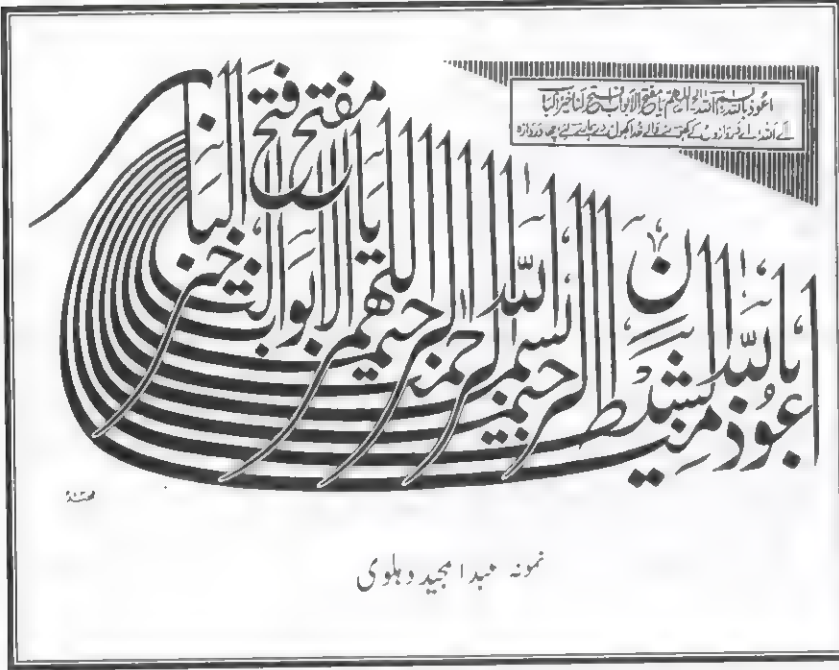 اعوذ باللہ بسم اللہ اللهم یا مفتح الابواب افتح لنا خیر الباب
اے اللہ اے دروازوں کے کھولنے والے خدا کھول دے ہمارے لئے دروازہ
اعوذ بالله من الشيطن الرجيم بسم الله الرحمن الرحيم اللهم يا مفتح الابواب افتح لنا خير الباب
نمونہ عبدالمجید دہلوی